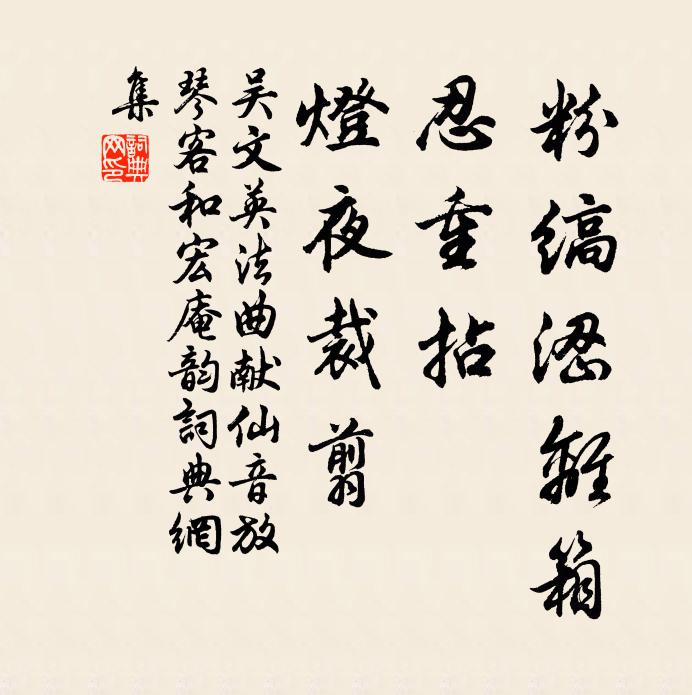 粉縞涩離箱
忍重拈
燈夜裁翦
吴文英法曲献仙音放
琴客和宏庵韵詞典網
集
詞典
网印